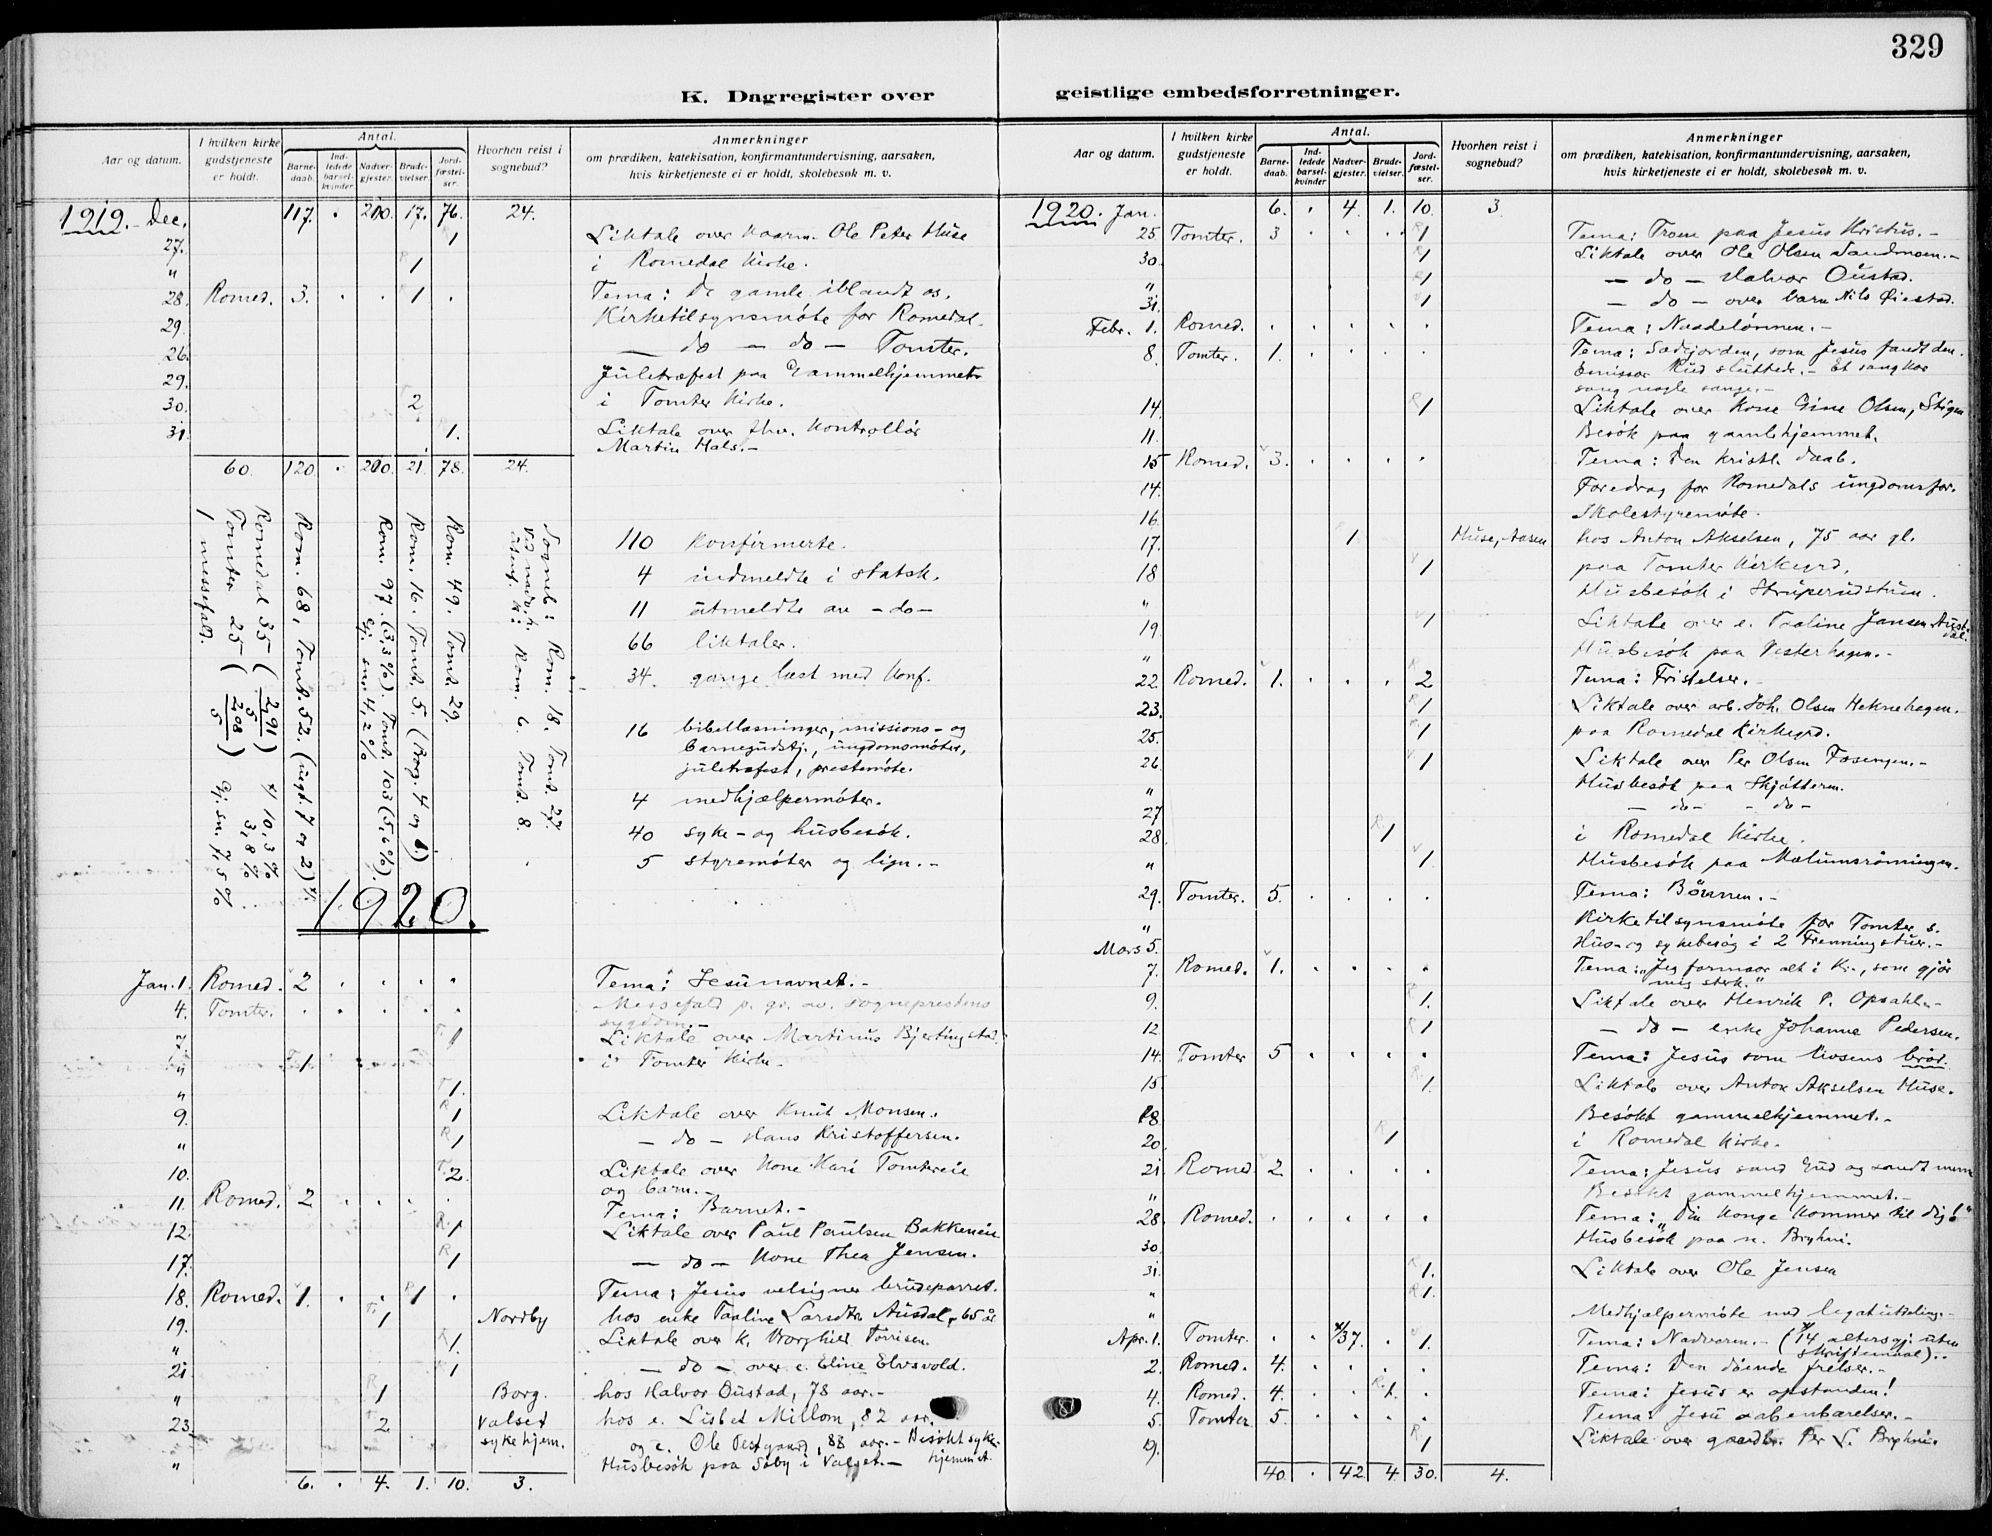 329
K. Dagregister over geistlige embedsforretninger.
Aar og datum.
I hvilken kirke gudstjeneste er holdt.
Antal.
Barne-daab.
Ind-ledede barsel-kvinder
Nadver-gjester.
Brude-vielser.
Jord-fæstel-ser.
Hvorhen reist i sognebud?
Anmerkninger
om prædiken, katekisation, konfirmantundervisning, aarsaken,
hvis kirketjeneste ei er holdt, skolebesøk m. v.
1919. Dec. 117. . 200. 17. 76. 24.
27. 1 Liktale over Ole Peter Huse
" 1 i Romedal Kirke.
28. Romed. 3. . . 1 . Tema: De gamle iblandt os.
29. Kirketilsynsmöte for Romedal.
26. — do — do — Tomter.
29. Juletræfest paa Gammelhjemmet
30. 2 i Tomter Kirke.
31. 1. Liktale over fhv. Kontrollör
Martin Hals.-
60. 120 . 200. 21. 78. 24.
Romedal 35 (291/5) 10,3 %
Tomter 25 (208/5) 3,8 %
1 messefald. Gj. sn. 7,5 %
Rom. 68, Tomt. 52. (uegt. 7 og 2)
Rom. 97. (3,3%). Tomt. 103 (5,6%).
Gj. snit 4,2 %
Rom. 16. Tomt. 5. (Borg. 4 og 1.)
Rom. 49. Tomt. 29.
Sogneb.: Rom. 18, Tomt. 27.
Rom. 6. Tomt. 8.
110 konfirmerte.
4 indmeldte i statsk.
11 utmeldte av -do-
66 liktaler.
34. gange læst med Konf.
16 bibellæsninger, missions- og
barnegudstj., ungdomsmöter,
juletræfest, prestemöte.
4 medhjælpermöter.
40 syke- og husbesök.
5 styremöter og lign.-
1920.
Jan. 1. Romed. 2 . . . . Tema: Jesunavnet.-
4. Tomter. . . . . . Messefald p. gr. av. sogneprestens
sygdom.-
7. 1 Liktale over Martinus Bjertingstad.
" 1 i Tomter Kirke.
" 1.
9. 1 Liktale over Knut Monsen.
" 1 — do — Hans Kristoffersen.
10. 2. Liktale over Kone Kari Tomtereie
og barn.-
11. Romed. 2 . . . . Tema: Barnet.-
12. 1 Liktale over Paul Paulsen Bakkeneie
17. 1 — do — Kone Thea Jensen.
18. Romed. 1. . . 1 . Tema: Jesus velsigner brudeparret.
19. 1 Nordby hos enke Pauline Larsdtr. Ausdal, 65 år
" 1. Liktale over K. Borghild Törrisen.
21. 1 — do — over e. Eline Elvsvold.
" 1 Borg. hos Halvor Oustad, 78 aar.-
23. 2 Valset hos e. Lisbet Millom, 82 aar.
sykehjem. og e. Ole Vestgaard, 88 aar.- Besökt syke-
" Husbesök paa Söby i Valset.- hjemmet.
6. . 4. 1. 10. 3.
Aar og datum.
I hvilken kirke gudstjeneste er holdt.
Antal.
Barne-daab.
Ind-ledede barsel-kvinder
Nadver-gjester.
Brude-vielser.
Jord-fæstel-ser.
Hvorhen reist i sognebud?
Anmerkninger
om prædiken, katekisation, konfirmantundervisning, aarsaken,
hvis kirketjeneste ei er holdt, skolebesøk m. v.
1920. Jan. 6. . 4. 1. 10. 3
25 Tomter. 3 . . . 1 Tema: Troen paa Jesus Kristus.-
30. 1 Liktale over Ole Olsen Sandmoen.-
" 1 — do — Halvor Oustad.
31. 1 — do — over barn Nils Öiestad.
Febr. 1. Romed. . . . . . Tema: Naadelönnen.-
8. Tomter. 1. . . . . Tema: Sædejorden, som Jesus fandt den.
Emissær Rud sluttede.- Et sangkor
sang nogle sange.-
14. 1 Liktale over Kone Gine Olsen, Stigen
11. Besök paa gamlehjemmet.
15 Romed. 3. . . . . Tema: Den Kristl. daab.
14. Foredrag for Romedals ungdomsfor.
16. Skolestyremöte.
17. 1 Huse, Aasen hos Anton Akselsen, 75 aar gl.
18 1 paa Tomter Kirkegrd.
" Husbesök i Struperudstuen.
19. 1 Liktale over e. Pauline Jansen Aus-
dal.
" Husbesök paa Vesterhagen.-
22. Romed. 1. . . . 2 Tema: Fristelser.-
23. 1 Liktale over arb. Joh. Olsen Heknehagen.-
25. 1 paa Romedal Kirkegrd.
26. 1 Liktale over Per Olsen Fosengen.-
" Husbesök paa Skjötteren.
27 — do — — do —
28. 1 i Romedal Kirke.
" 1. Husbesök paa Mælumsrönningen.
29. Tomter. 5. . . . . Tema: Bönnen.-
" Kirketilsynsmöte for Tomter s.
Mars 5. Hus- og sykebesög i 2 Frenningstuer.-
7. Romed. 1. . . . . Tema: "Jeg formaar alt i Kr., som gjör
mig sterk."
9. 1. Liktale over Henrik P. Opsahl.-
12. 1 — do — enke Johanne Pedersen.
14. Tomter 5 . . . . Tema: Jesus som livsens bröd.
15. 1. Liktale over Anton Akselsen Huse.
18 Besökt gammelhjemmet.-
20. 1 i Romedal Kirke.
21 Romed 2 . . . . Tema: Jesus sand Gud og sandt menn
" Besökt gammelhjemmet.-
28. Romed. . . . . . Tema: "Din Konge kommer til dig!"
30. Husbesök paa n. Bryhni.
31. 1. Liktale over Ole Jensen
" 1.
" Medhjælpermöte med legatutdeling.-
Apr. 1. Tomter. . . 37. . 1. Tema: Nadveren.- (14 altersgj. uten
skriftemaal).-
2. Romed. 4. . . . . Tema: Den döende frelser.-
4. Romed. 4. . . 1. Tema: Jesus er opstanden!
5. Tomter 5. . . . . Tema: Jesu aabenbarelser.-
9. 1 Liktale over gaardbr. Per L. Bryhni.
40. . 42. 4. 30. 4.